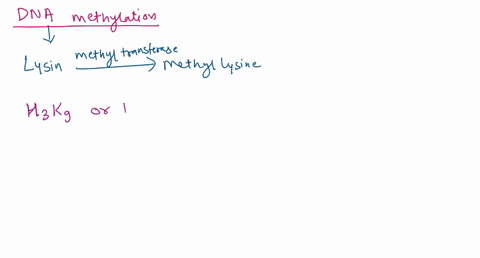 DNA methylation
Lysin methyl transferase methyl lysine
H3K9 or